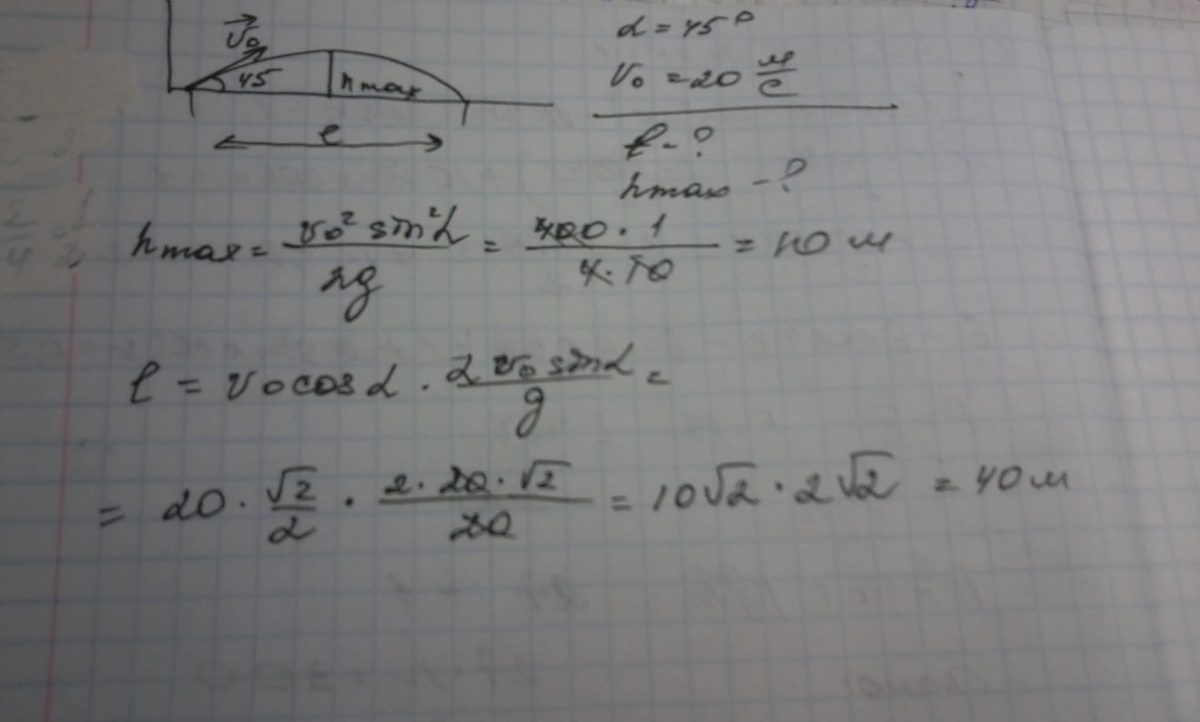 v₀
45
hmax
l
α = 45°
v₀ = 20 м/с
l - ?
hmax - ?
hmax = v₀² sin²α / 2g = 400 · 1 / 4 · 10 = 10 м
l = v₀ cos α · 2 v₀ sin α / g =
= 20 · √2 / 2 · 2 · 20 · √2 / 20 = 10√2 · 2√2 = 40 м